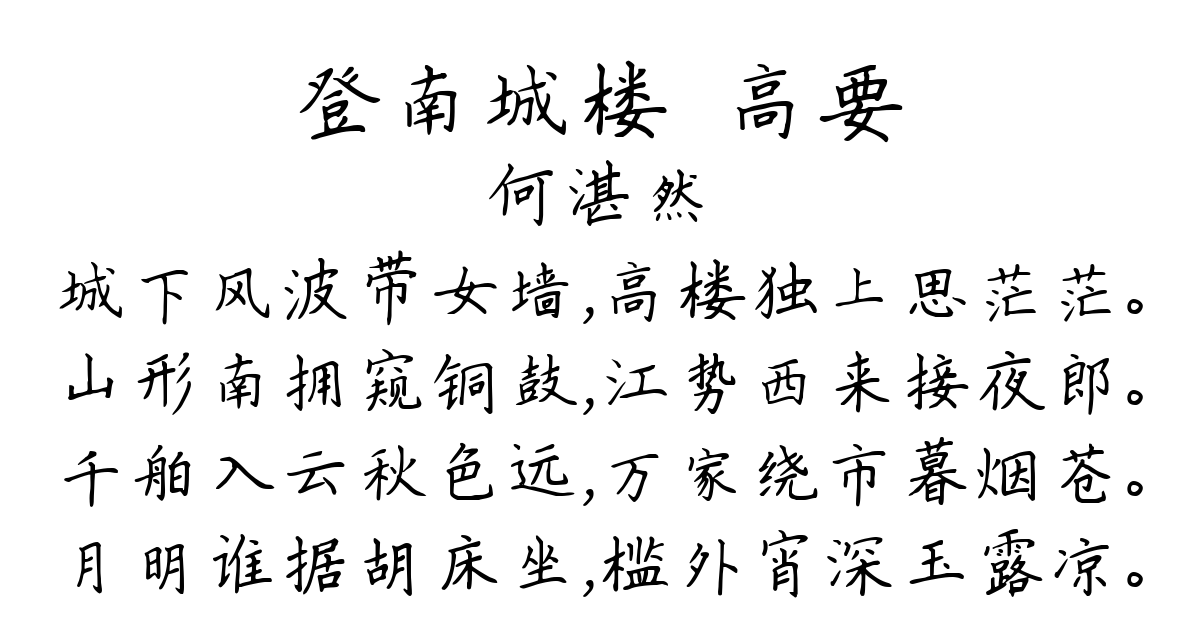 登南城楼 高要
何湛然
城下风波带女墙,高楼独上思茫茫。
山形南拥窥铜鼓,江势西来接夜郎。
千舶入云秋色远,万家绕市暮烟苍。
月明谁据胡床坐,槛外宵深玉露凉。